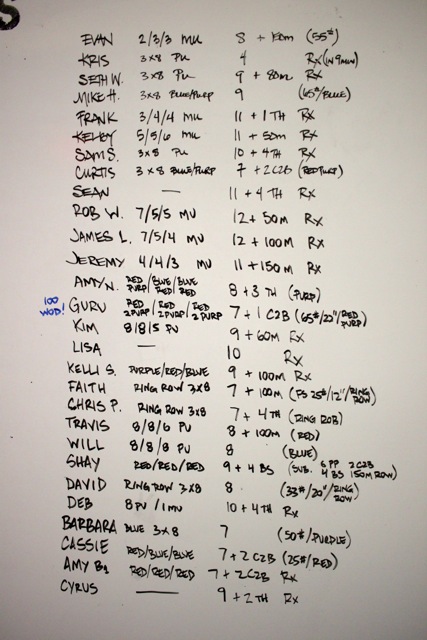 S
EVAN 2/3/3 MU 8 + 150m (55#)
KRIS 3x8 PU 4 Rx (IN 9 MIN)
SETH W. 3x8 PU 9 + 80m Rx
MIKE H. 3x8 BLUE/PURP 9 (65#/BLUE)
FRANK 3/4/4 MU 11 + 1 TH Rx
KELBY 5/5/6 MU 11 + 50m Rx
SAM S. 3x8 PU 10 + 4TH Rx
CURTIS 3x8 BLUE/PURP 7 + 2 C2B (RED/PURP)
SEAN — 11 + 4 TH Rx
ROB W. 7/5/5 MU 12 + 50 M Rx
JAMES L. 7/5/4 MU 12 + 100 M Rx
JEREMY 4/4/3 MU 11 + 150 M Rx
AMY N. RED/PURP/BLUE/RED/BLUE/RED 8 + 3 TH (PURP)
100 WOD! GURU RED/2PURP/RED/2PURP/RED/2PURP 7 + 1 C2B (65#/20"/RED PURP)
KIM 8/8/5 PU 9 + 60m Rx
LISA — 10 Rx
KELLI S. PURPLE/RED/BLUE 9 + 100m Rx
FAITH RING ROW 3x8 7 + 100m (FS 25#/12"/RING ROW)
CHRIS P. RING ROW 3x8 7 + 4TH (RING ROB)
TRAVIS 8/8/6 PU 8 + 100m (RED)
WILL 8/8/8 PU 8 (BLUE)
SHAY RED/RED/RED 9 + 4 BS (SUB. 6 PP 2 C2B 4 BS 150M ROW)
DAVID RING ROW 3x8 8 (33#/20"/RING ROW)
DEB 8 PU / 1 MU 10 + 4TH Rx
BARBARA BLUE 3x8 7 (50#/PURPLE)
CASSIE RED/BLUE/BLUE 7 + 2 C2B (25#/RED)
AMY B. RED/RED/RED 7 + 2 C2B Rx
CYRUS — 9 + 2 TH Rx